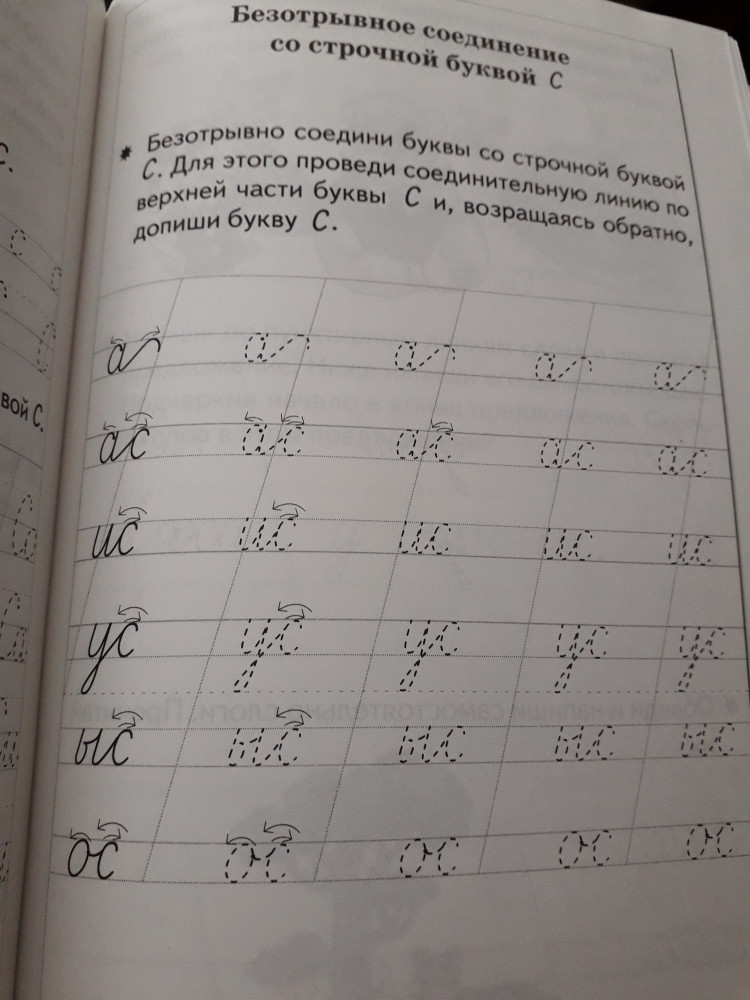 Безотрывное соединение
со строчной буквой с
* Безотрывно соедини буквы со строчной буквой
с. Для этого проведи соединительную линию по
верхней части буквы с и, возращаясь обратно,
допиши букву с.
ас ас ас ас ас
ис ис ис ис ис
ус ус ус ус ус
ыс ыс ыс ыс ыс
ос ос ос ос ос
вой с.